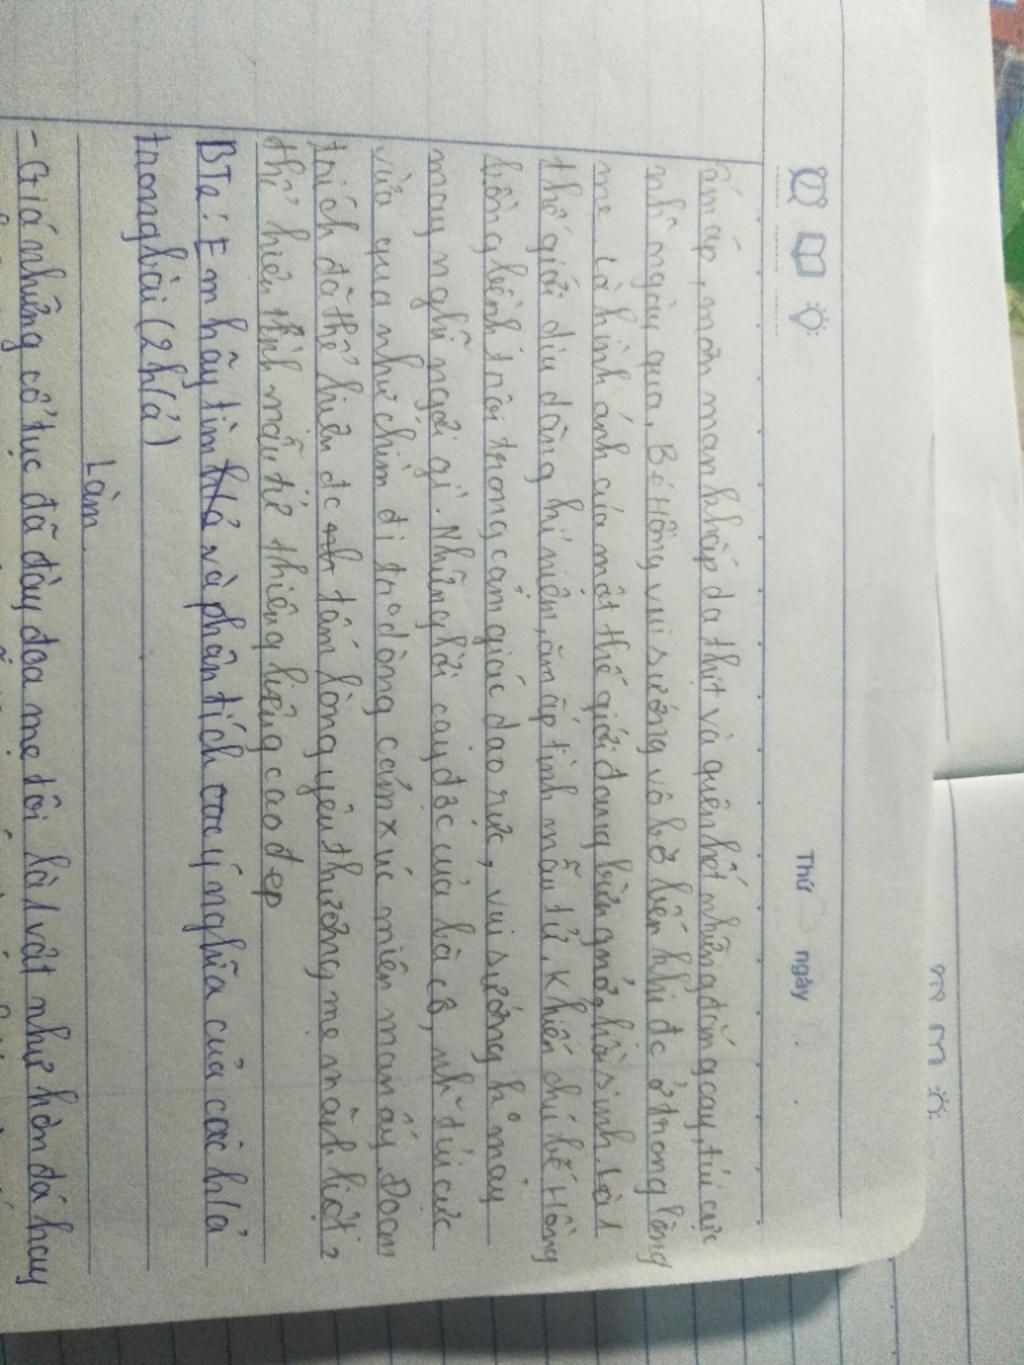 Thứ ngày
ấm áp, mơn man khắp da thịt và quên hết những đắng cay, tủi cực
nh~ ngày qua. Bé Hồng vui sướng vô bờ bến khi đc ở trong lòng
mẹ. Là hình ảnh của một thế giới đang bừng nở, hồi sinh. Là 1
thế giới dịu dàng kỉ niệm, ăm ắp tình mẫu tử. Khiến chú bé Hồng
bồng bềnh trôi trong cảm giác dạo rực, vui sướng k° mảy
may nghĩ ngợi gì. Những lời cay độc của bà cô, nh~ tủi cực
vừa qua như chìm đi tr° dòng cảm xúc miên man ấy. Đoạn
trích đã thể hiện đc tấm lòng yêu thương mẹ mãnh liệt,
thể hiện tình mẫu tử thiêng liêng cao đẹp
BT2: Em hãy tìm h/ả và phân tích ý nghĩa của các h/ả
trong bài (2 h/ả)
Làm
- Giá những cổ tục đã đày đọa mẹ tôi là 1 vật như hòn đá hay